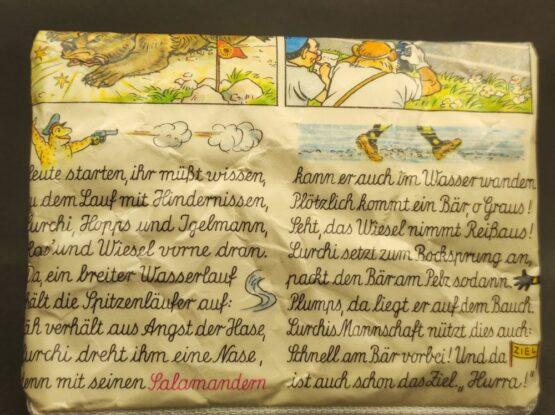 leute starten, ihr müßt wissen,
zu dem Lauf mit Hindernissen,
Lurchi, Hopps und Igelmann,
Has' und Wiesel vorne dran.
Da, ein breiter Wasserlauf
hält die Spitzenläufer auf:
Jäh verhält aus Angst der Hase,
Lurchi dreht ihm eine Nase,
denn mit seinen Salamandern
kann er auch im Wasser wandern
Plötzlich kommt ein Bär, o Graus!
Seht, das Wiesel nimmt Reißaus!
Lurchi setzt zum Bocksprung an,
packt den Bär am Pelz sodann
Plumps, da liegt er auf dem Bauch.
Lurchis Mannschaft nützt dies auch:
Schnell am Bär vorbei! Und da
ZIEL
ist auch schon das Ziel „Hurra!"